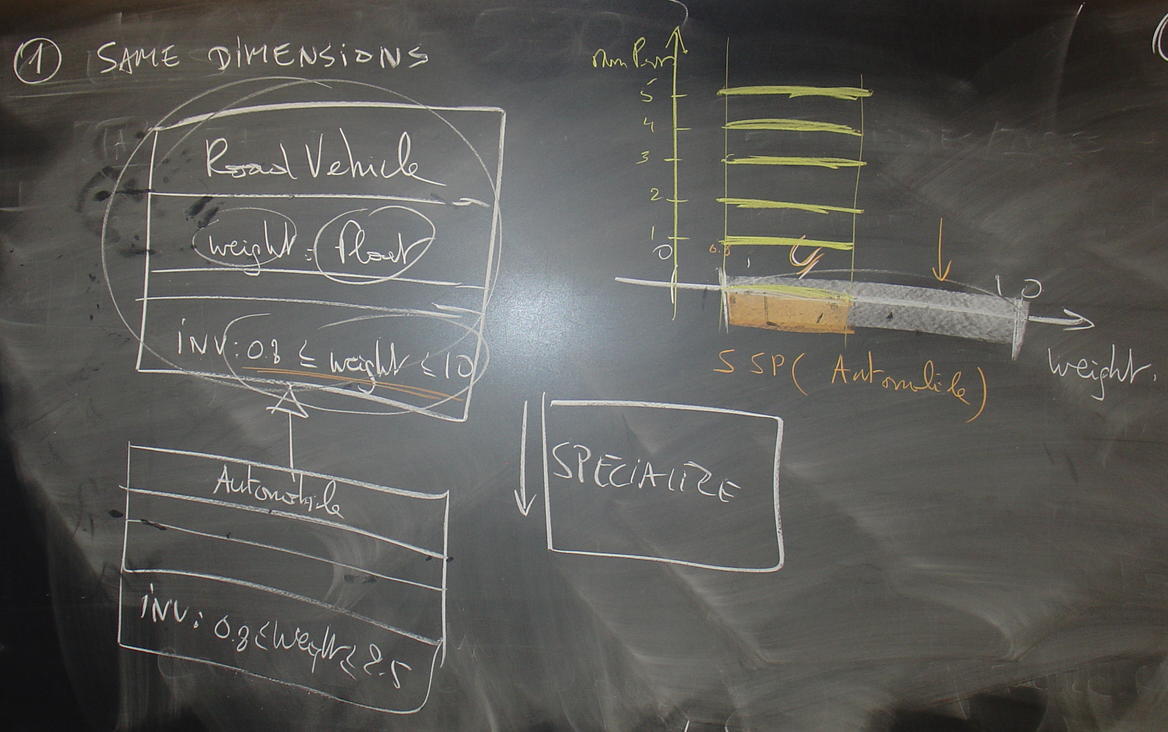 ① SAME DIMENSIONS
Road Vehicle
weight : Float
iNV: 0.8 ≤ weight ≤ 10
Automobile
iNV: 0.8 ≤ Weight ≤ 2.5
SPECIALIZE
5
4
3
2
1
0
10
weight.
SSP( Automobile)